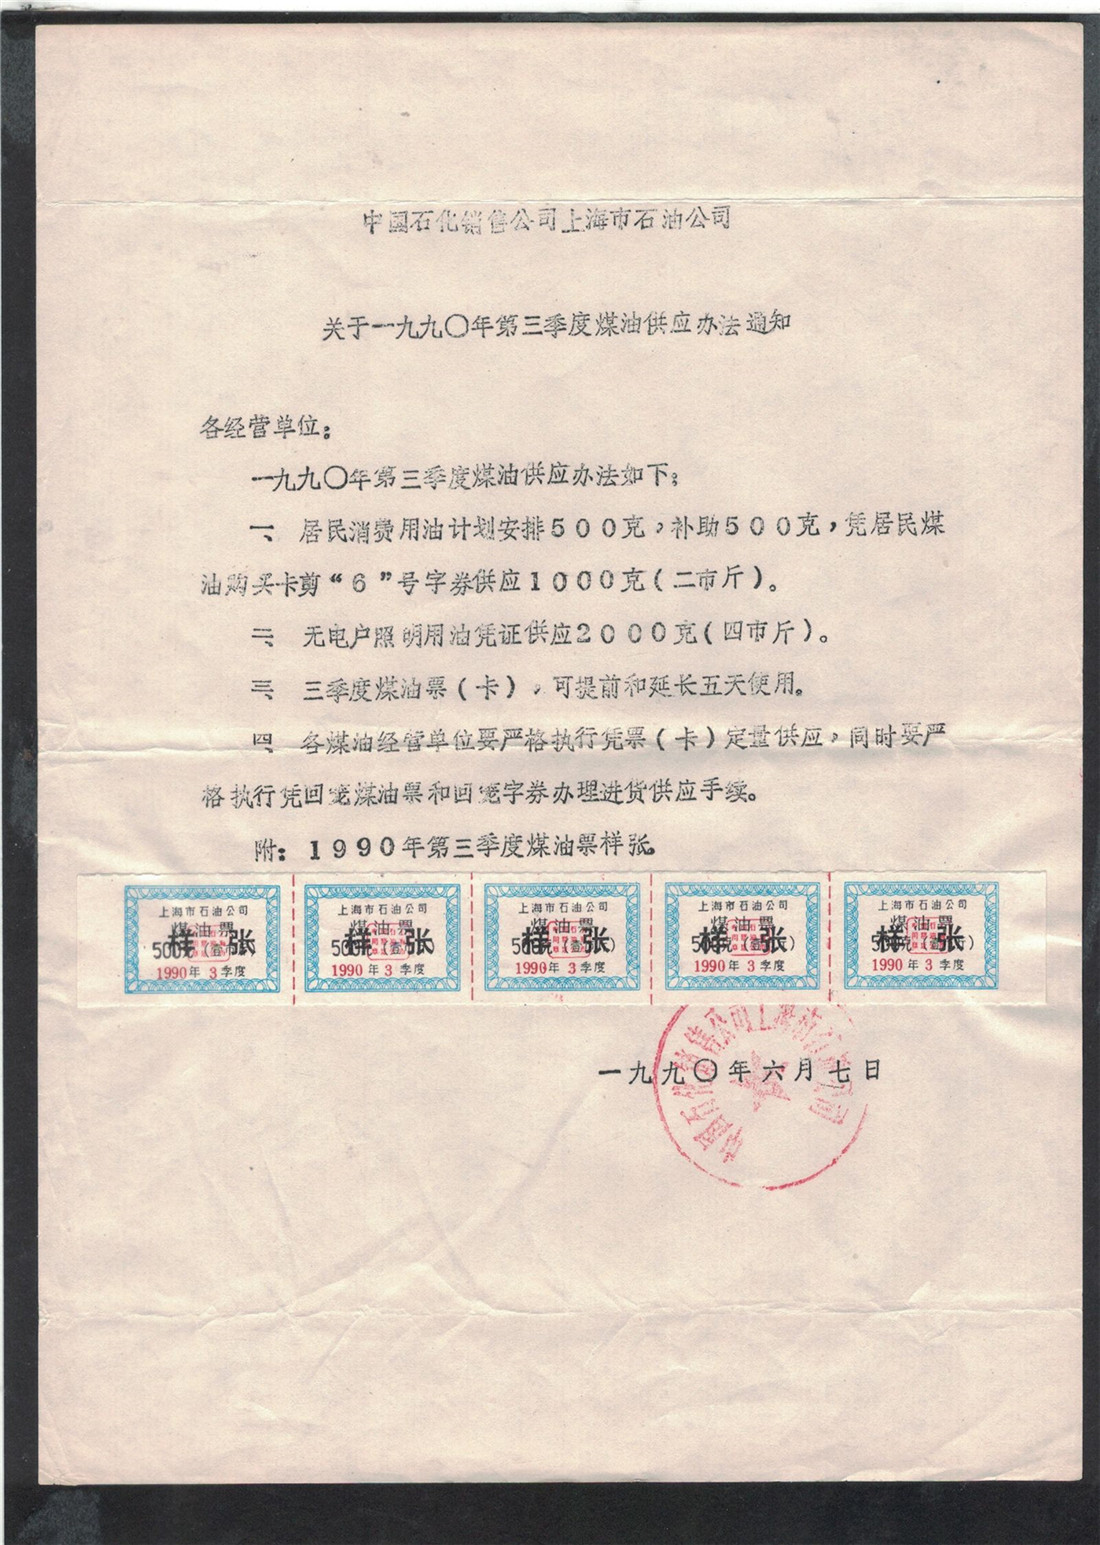 中国石化销售公司上海市石油公司
关于一九九〇年第三季度煤油供应办法通知
各经营单位：
一九九〇年第三季度煤油供应办法如下；
一、居民消费用油计划安排500克，补助500克，凭居民煤
油购买卡剪“6”号字券供应1000克(二市斤)。
二、无电户照明用油凭证供应2000克(四市斤)。
三、三季度煤油票(卡)，可提前和延长五天使用。
四、各煤油经营单位要严格执行凭票(卡)定量供应，同时要严
格执行凭回笼煤油票和回笼字券办理进货供应手续。
附：1990年第三季度煤油票样张。
上海市石油公司
煤油票
样张
500克(壹
1990年3季度
上海市石油公司
煤油票
样张
1990年3季度
上海市石油公司
煤油票
样张
1990年3季度
上海市石油公司
煤油票
样张
1990年3季度
上海市石油公司
煤油票
样张
1990年3季度
一九九〇年六月七日